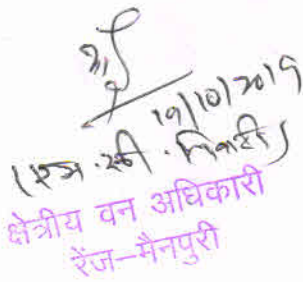 19/10/2019
(एम.सी. तिवारी)
क्षेत्रीय वन अधिकारी
रेंज-मैनपुरी